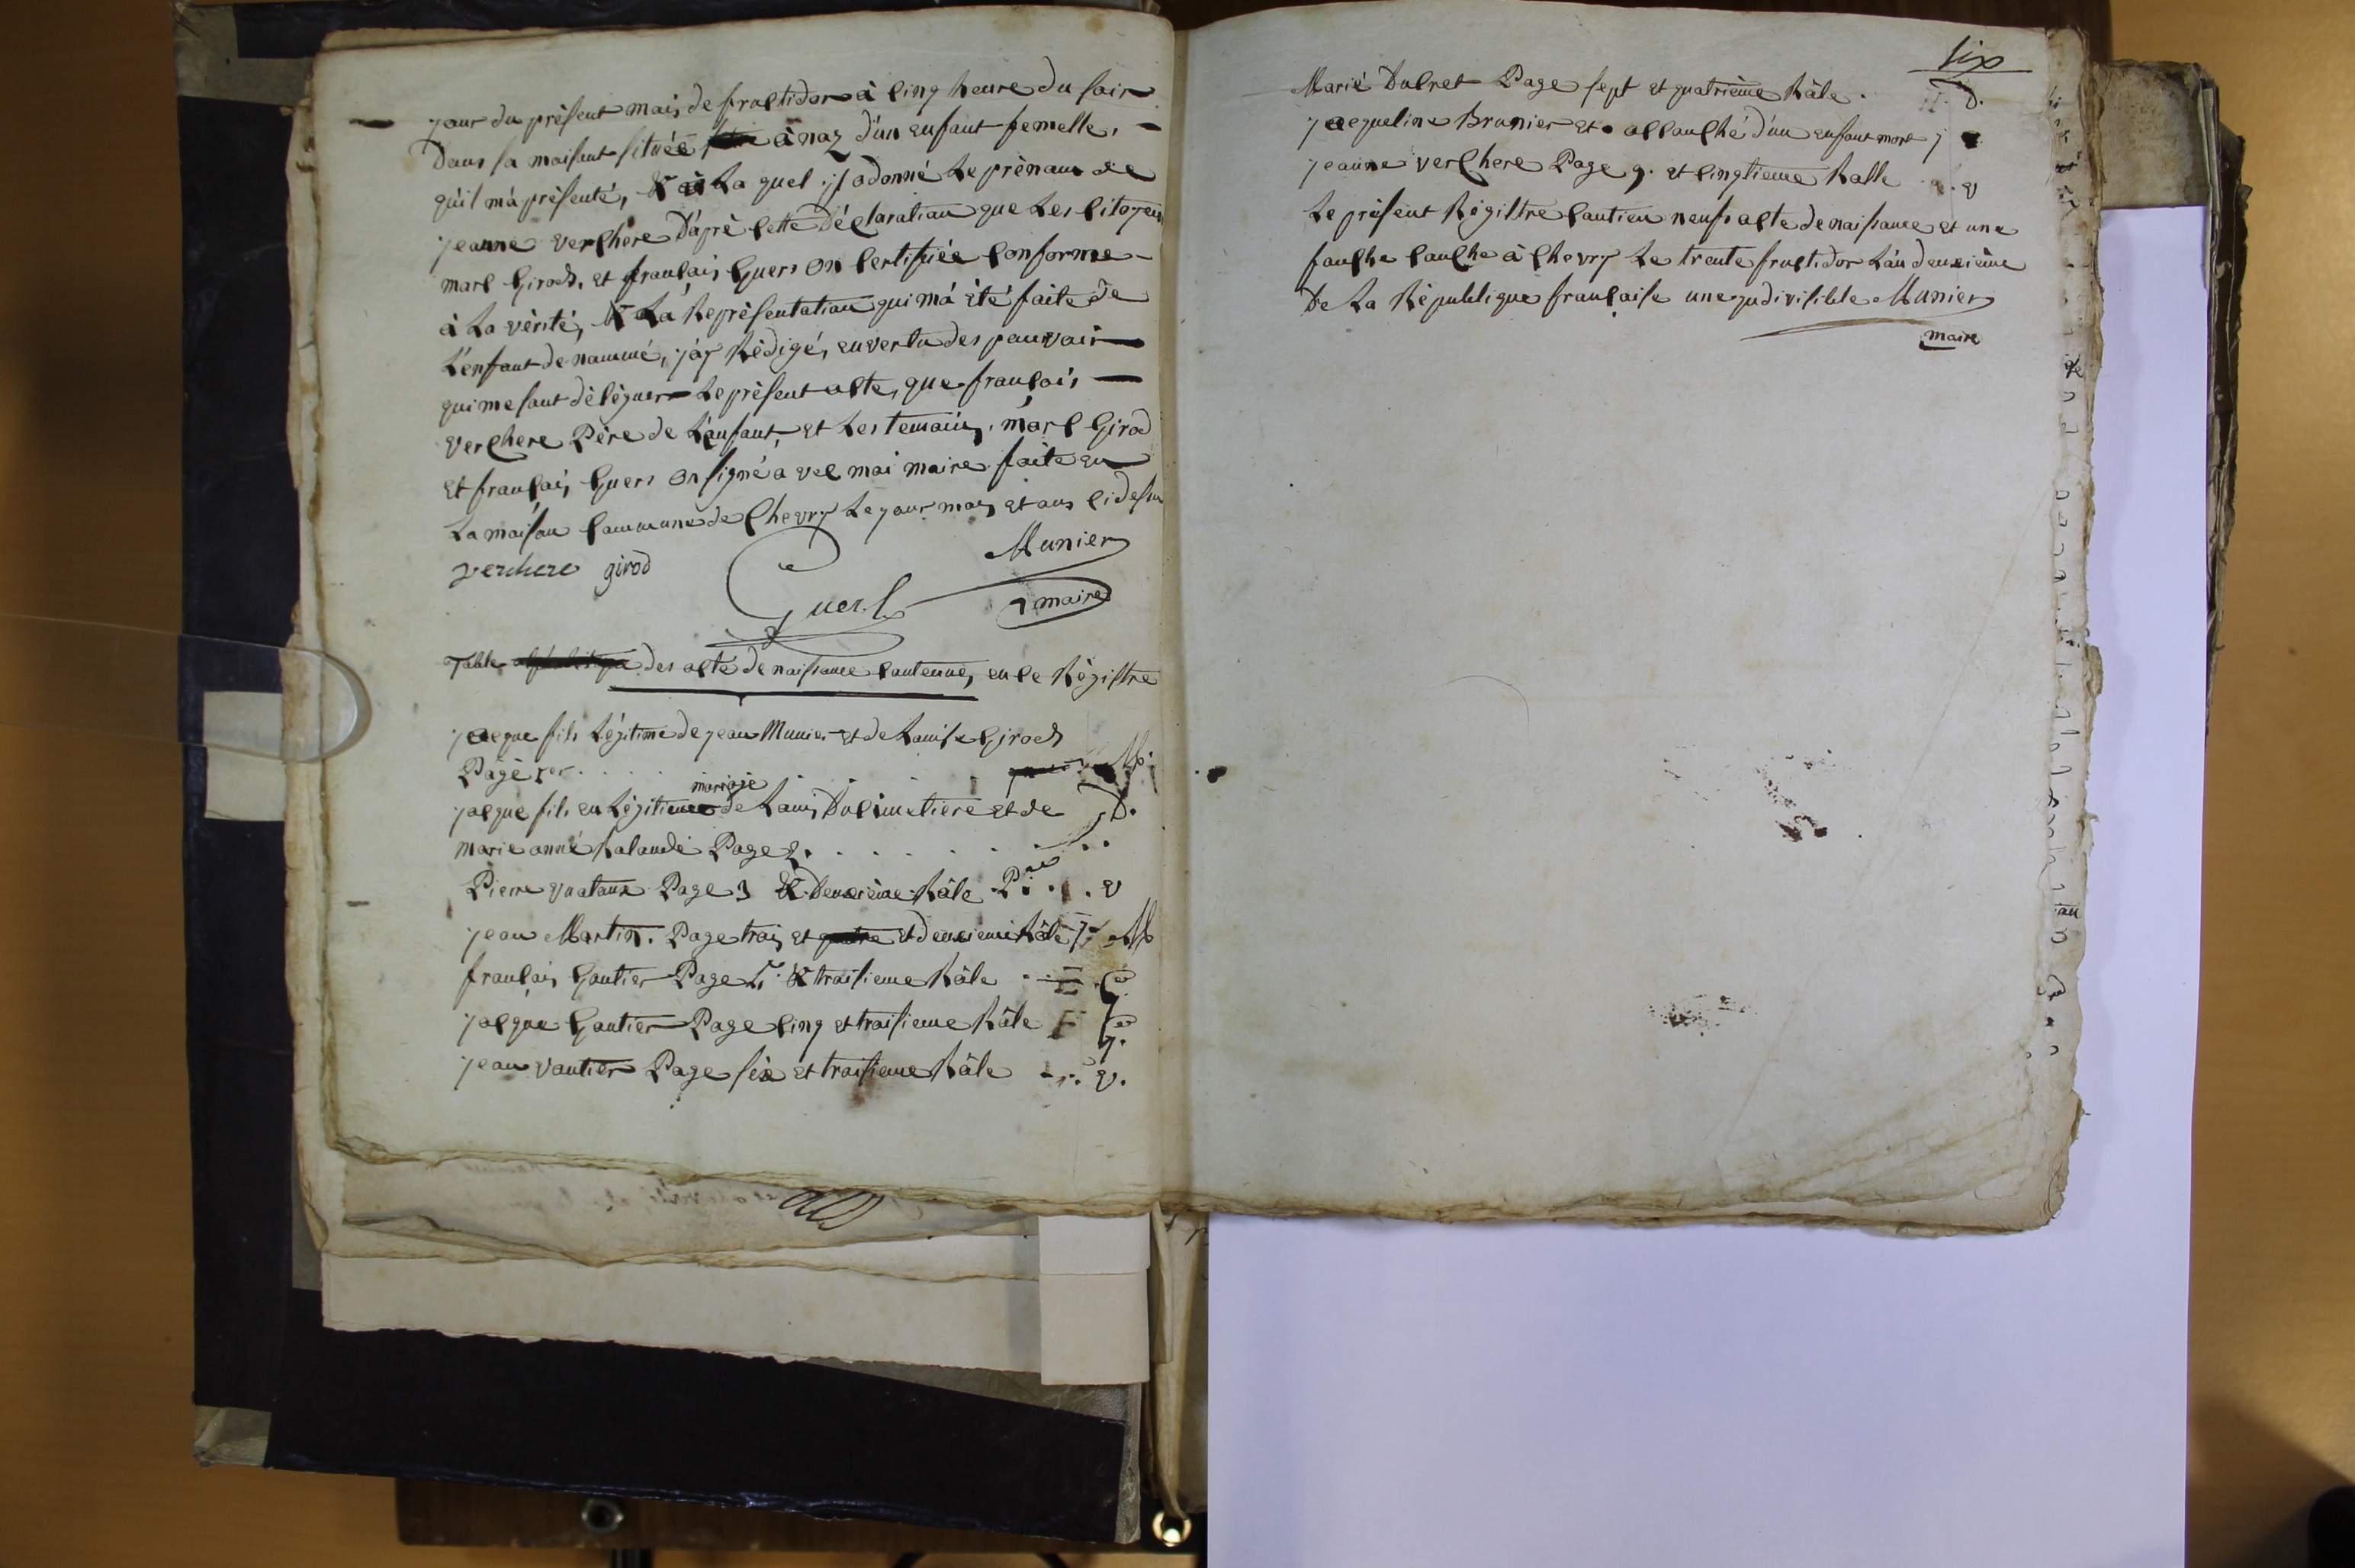 jour du présent mois de fructidor à cinq heure du soir
Dans sa maisont située à naz d'un enfant femelle,
qu'il m'à présenté, & à La quel jl a donné Le prènom de
jeanne verchere D'aprè cette Déclaration que Les citoyen
marc Girod, et francois Guers on certifiée conforme
à La vérité, & La Représentation qui m'a été faite de
L'enfant de nommé, j'ay Rédigé, en vertu des pouvoir
qui me sont déléguer Le présent acte, que francois
verchere Père de L'enfant, et Les temoin, marc Girod
et francois Guers on signé a vec moi maire faite en
La maison commune de Chevry Le jour mois et ans ci desu
verchere girod
Munier
Guers
maire
Table des acté de naissance contenue, en ce Régistre
jacque fils Légitime de jean Munier et de Louise Girod
Page 1er M.
mariaje
jacque fils en Légitime de Louis Ducimetiere et de D.
marie anné Lalande Page 2.
Pierre vuataux Page 3 & Deuxième Rôle P. v
jean Martin. Page trois et et deuxieme Rôle j. M
francois Gautier Page 4. & troisieme Rôle G
jacque Gautier Page cinq et troisieme Rôle G.
jean vautier Page six et troisieme Rôle v.
six
Marie Ducret Page sept et quatrième Rôle. D.
jacqueline Brunier et accouché d'un enfant mort j
jeanne verchere Page 9. et cinqtieme Rolle v
Le présent Régistre contien neufs acte de naissance et une
faushe cauche à Chevry Le trente fructidor L'an deuxième
De La République francaise une jndivisible Munier
maire